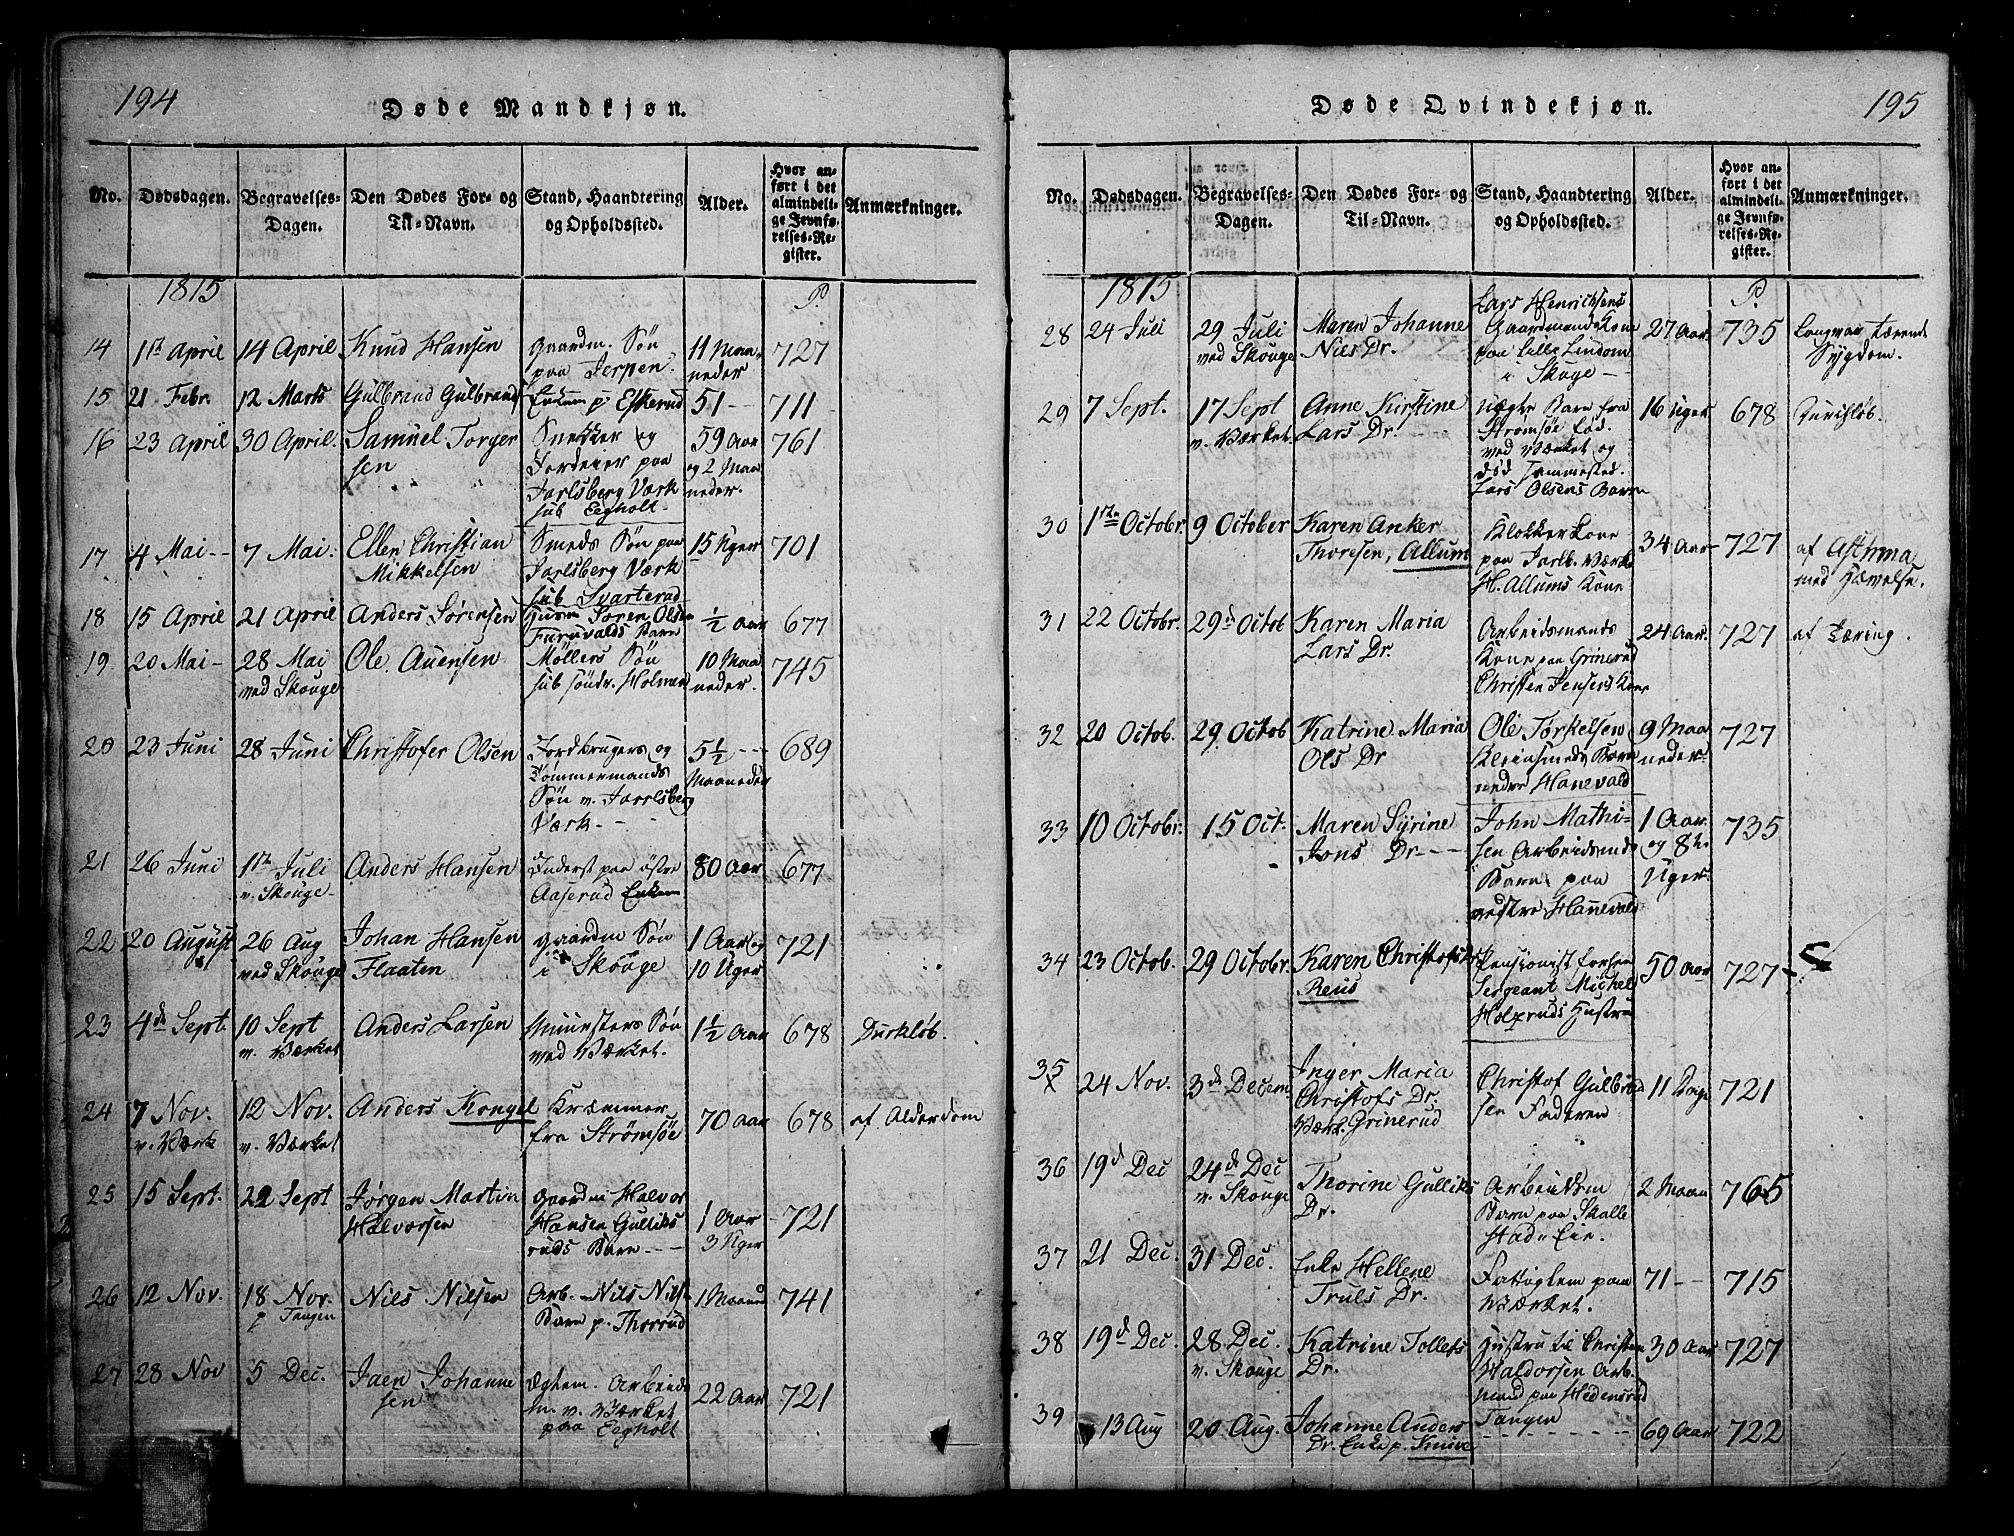 194
Døde Mandkjøn.
No. Dødsdagen. Begravelses-Dagen. Den Dødes For- og Til-Navn. Stand, Haandtering og Opholdssted. Alder. Hvor anført i det almindelige Jevnførelses-Register. Anmærkninger.
1815 P.
14 1ste April 14 April Knud Hansen Gaardm. Søn paa Jerpen. 11 Maaneder 727
15 21 Febr. 12 Marts Gulbrand Gulbrands Enkem p. Eskerud 51 - 711
16 23 April 30 April. Samuel Torgersen Snekker og Jordeier paa Jarlsberg Værk sub Eegholt 59 Aar og 2 Maaneder. 761
17 4 Mai - 7 Mai. Ellen Christian Mikkelsen Smeds Søn paa Jarlsberg Værk sub Svarterud 15 Uger 701
18 15 April 21 April Anders Sørensen Husm Søren Olsen Furuvalds Barn ½ Aar 677
19 20 Mai - 28 Mai ved Skouge Ole Auensen Møllers Søn sub søndr. Holmen 10 Maaneder. 745
20 23 Juni 28 Juni Christofer Olsen Jordbrugers og Tømmermands Søn v. Jarlsberg Værk. 5½ Maaneder 689
21 26 Juni 1ste Juli v. Skouge Anders Hansen Inderst paa østre Aaserud Enkem 80 Aar 677
22 20 August 26 Aug ved Skouge Johan Hansen Flaaten Gaardm Søn i Skouge 1 Aar og 10 Uger 721
23 4de Sept. 10 Sept v. Værket Anders Larsen Søn ved Værket. 1½ Aar 678 Durkløb.
24 7 Nov. v. Værk 12 Nov. v. Værket Anders Kongel Kræmmer fra Strømsøe 70 Aar 678 af Alderdom
25 15 Sept. 22 Sept Jørgen Martin Halvorsen Gaardm Halvor Hansen Gulliksruds Barn 1 Aar 3 Uger 721
26 12 Nov. 18 Nov. p Tangen Nils Nilsen Arb. Nils Nils. Barn p. Thorrud 1 Maaned 741
27 28 Nov 5 Dec. Jaen Johannesen Ægtem. Arbeidsm. v. Værket paa Eegholt 22 Aar 721
Døde Qvindekjøn. 195
No. Dødsdagen. Begravelses-Dagen. Den Dødes For- og Til-Navn. Stand, Haandtering og Opholdssted. Alder. Hvor anført i det almindelige Jevnførelses-Register. Anmærkninger.
1815 P.
28 24 Juli 29 Juli ved Skouge Maren Johanne Nils Dr. Lars Henrichsens Gaardmands Kone paa Lille Lindom i Skoge - 27 Aar. 735 Langvar. tærende Sygdom.
29 7 Sept. 17 Sept v. Værket. Anne Kirstine Lars Dr. Uægte Barn fra Strømsøe Fød. ved Værket og død sammested. Lars Olsens Barn 16 Uger 678
30 1ste Octobr. 9 October Karen Anker Thoresen, Allum Klokkerkone paa Jarlb. Værk H. Allums Kone 34 Aar 727 af Asthma med Hævelse.
31 22 Octobr. 29d Octob Karen Maria Lars Dr. Arbeidsmands Kone paa Grinerud Christen Jensens Kone 24 Aar. 727 af Tæring.
32 20 Octob. 29. Octob Katrine Maria Ols Dr Ole Torkelsen Kleinsmeds Barn nedre Hanevald 9 Maaneder 727
33 10 Octobr. 15 Oct. Maren Syrine Jons Dr. John Mathisen Arbeidsmds Barn paa vestre Hanevald 1 Aar og 8te Uger 735
34 23 Octob. 29 Octobr. Karen Christofs Dr Reus Pensionist forhen Sergeant Michel Holtruds Hustru 50 Aar 727
35 x 24 Nov. 3de Decem Inger Maria Christofs Dr. Værk. Grinerud Christof Gulbrandsen Faderen 11 Dage 721
36 19d Dec 24de Dec v. Skouge Thorine Gulliks Dr. Arbeidsm Barn paa Skallestad Eie. 2 Maan 765
37 21 Dec. 31 Dec. Enke Hellene Truls Dr. Fattiglem paa Værket. 71 - 715
38 19d Dec. 28 Dec. v. Skouge Katrine Tollefs Dr. Hustru til Christen Haldorsen Arb. mand paa Hedensrud Tangen 30 Aar 727
39 13 Aug 20 Aug. Johanne Anders Dr. Enke p. Knive 69 Aar 722